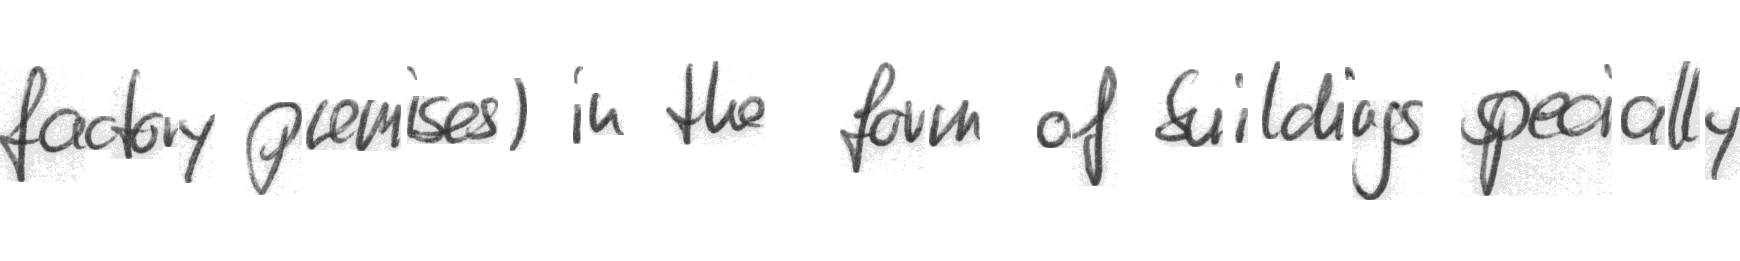 factory premises) in the form of buildings specially